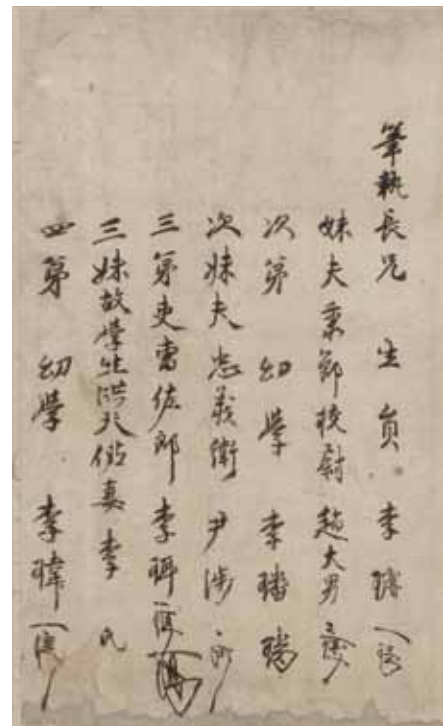 筆執長兄 生員 李璿
妹夫秉節校尉 趙大男
次第 幼學 李璠
次妹夫 忠義衛 尹涉
三第吏曹佐郎 李珥
三妹故學生洪天佑妻 李氏
四第 幼學 李瑋